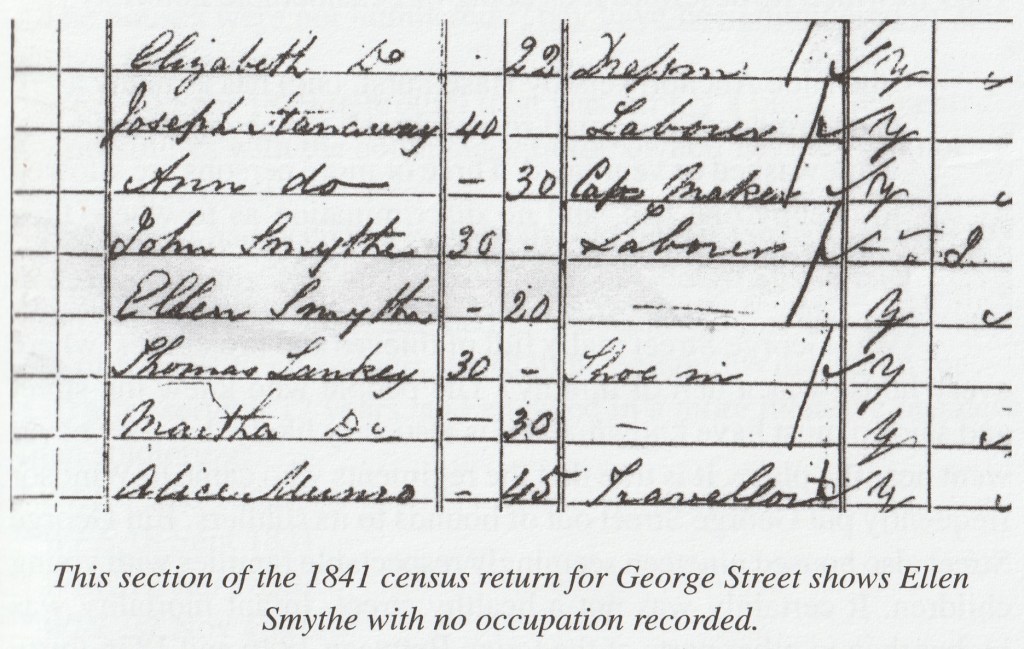 Elizabeth Do 22 Dressm y
Joseph Stanaway 40 - Laborer y
Ann do - 30 Caps Maker y
John Smythe 30 - Laborer I
Ellen Smythe - 20 — y
Thomas Lankey 30 - Shoe m y
Martha Do - 30 - y
Alice Munro - 45 Travellor y
This section of the 1841 census return for George Street shows Ellen
Smythe with no occupation recorded.